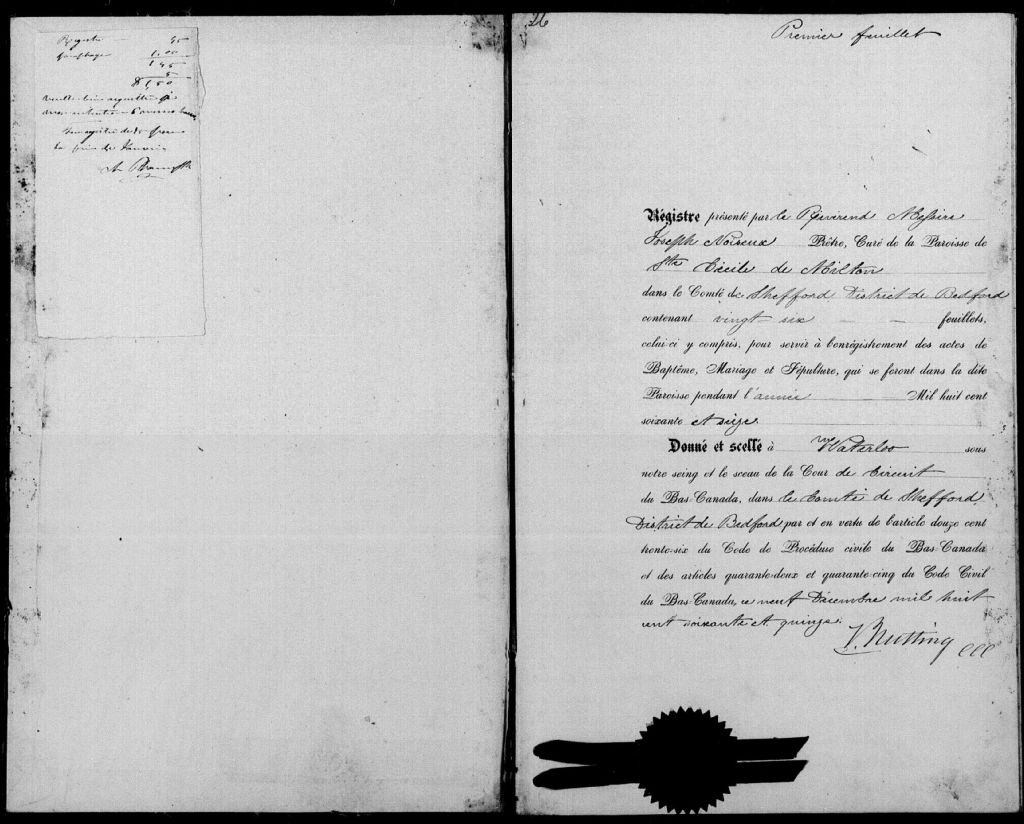 Registre 45
1.00
1 45
5
$1,50
26
Premier feuillet
Régistre présenté par le Révérend Messire
Joseph Noiseux Prêtre, Curé de la Paroisse de
Ste Cécile de Milton
dans le Comté de Shefford District de Bedford
contenant vingt six feuillets,
celui-ci y compris, pour servir à l'enrégistrement des actes de
Baptême, Mariage et Sépulture, qui se feront dans la dite
Paroisse pendant l'année Mil huit cent
soixante et seize.
Donné et scellé à Waterloo sous
notre seing et le sceau de la Cour de Circuit
du Bas-Canada, dans le Comté de Shefford,
District de Bedford par et en vertu de l'article douze cent
trente-six du Code de Procédure civile du Bas-Canada
et des articles quarante-deux et quarante-cinq du Code Civil
du Bas-Canada, ce neuf Décembre mil huit
cent soixante et quinze.
Nutting CCC